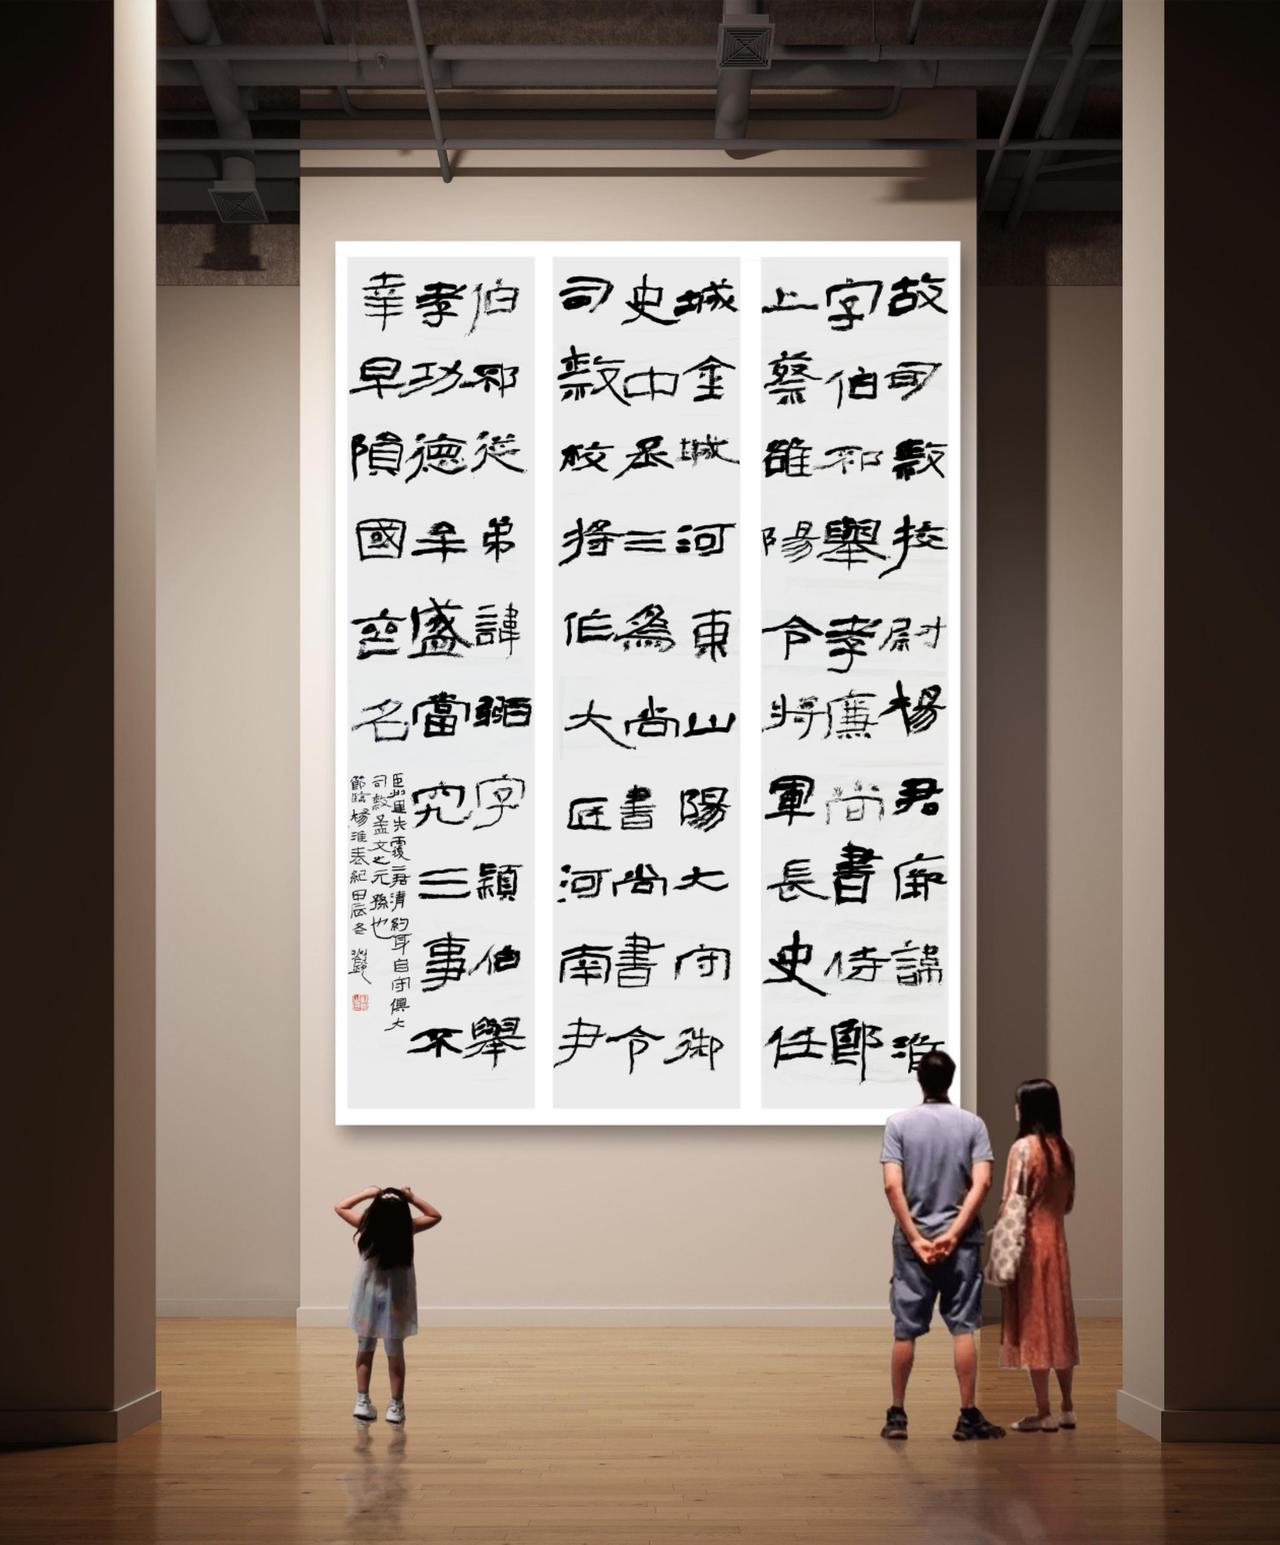 故司隸校尉楊君厥諱淮
字伯邳舉孝廉尚書侍郎
上蔡雒陽令將軍長史任
城金城河東山陽大守御
史中丞三為尚書尚書令
司隸校將作大匠河南尹
伯邳從弟諱弼字穎伯舉
孝功德牟盛當究三事不
幸早隕國喪名
臣州里失覆二君清約身自守俱大
司隸孟文之元孫也
節臨楊淮表紀甲辰冬